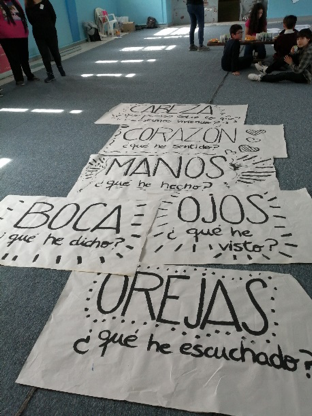 CABEZA
CORAZÓN
¿qué he sentido?
MANOS
¿qué he hecho?
BOCA
¿qué he dicho?
OJOS
¿qué he
visto?
OREJAS
¿qué he escuchado?